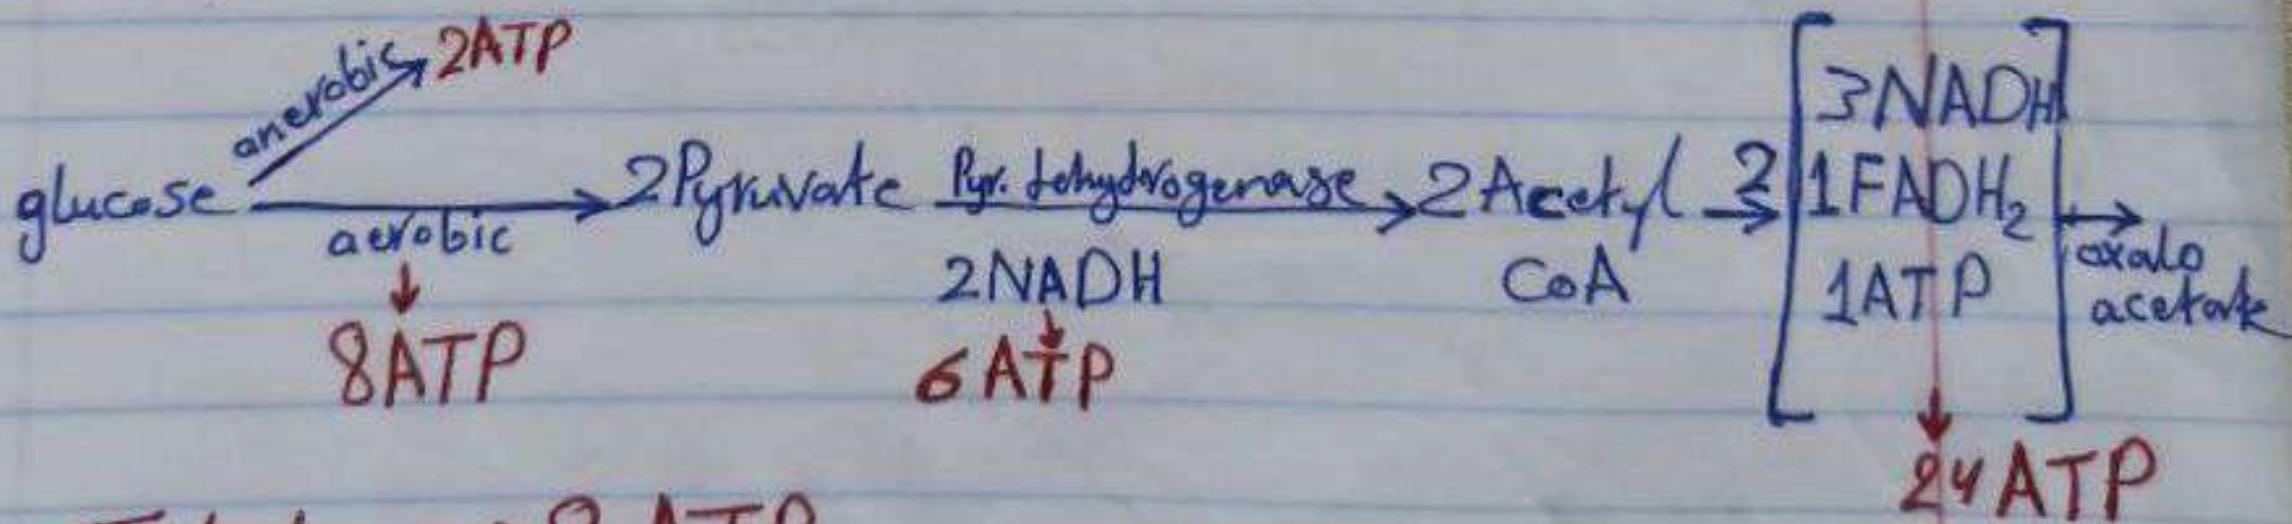 anerobic 2ATP
glucose aerobic 2Pyruvate Pyr. dehydrogenase 2 Acetyl CoA 2 [3NADH 1FADH₂ 1ATP] oxalo acetate
8ATP 2NADH 6 ATP 24 ATP
8 ATP